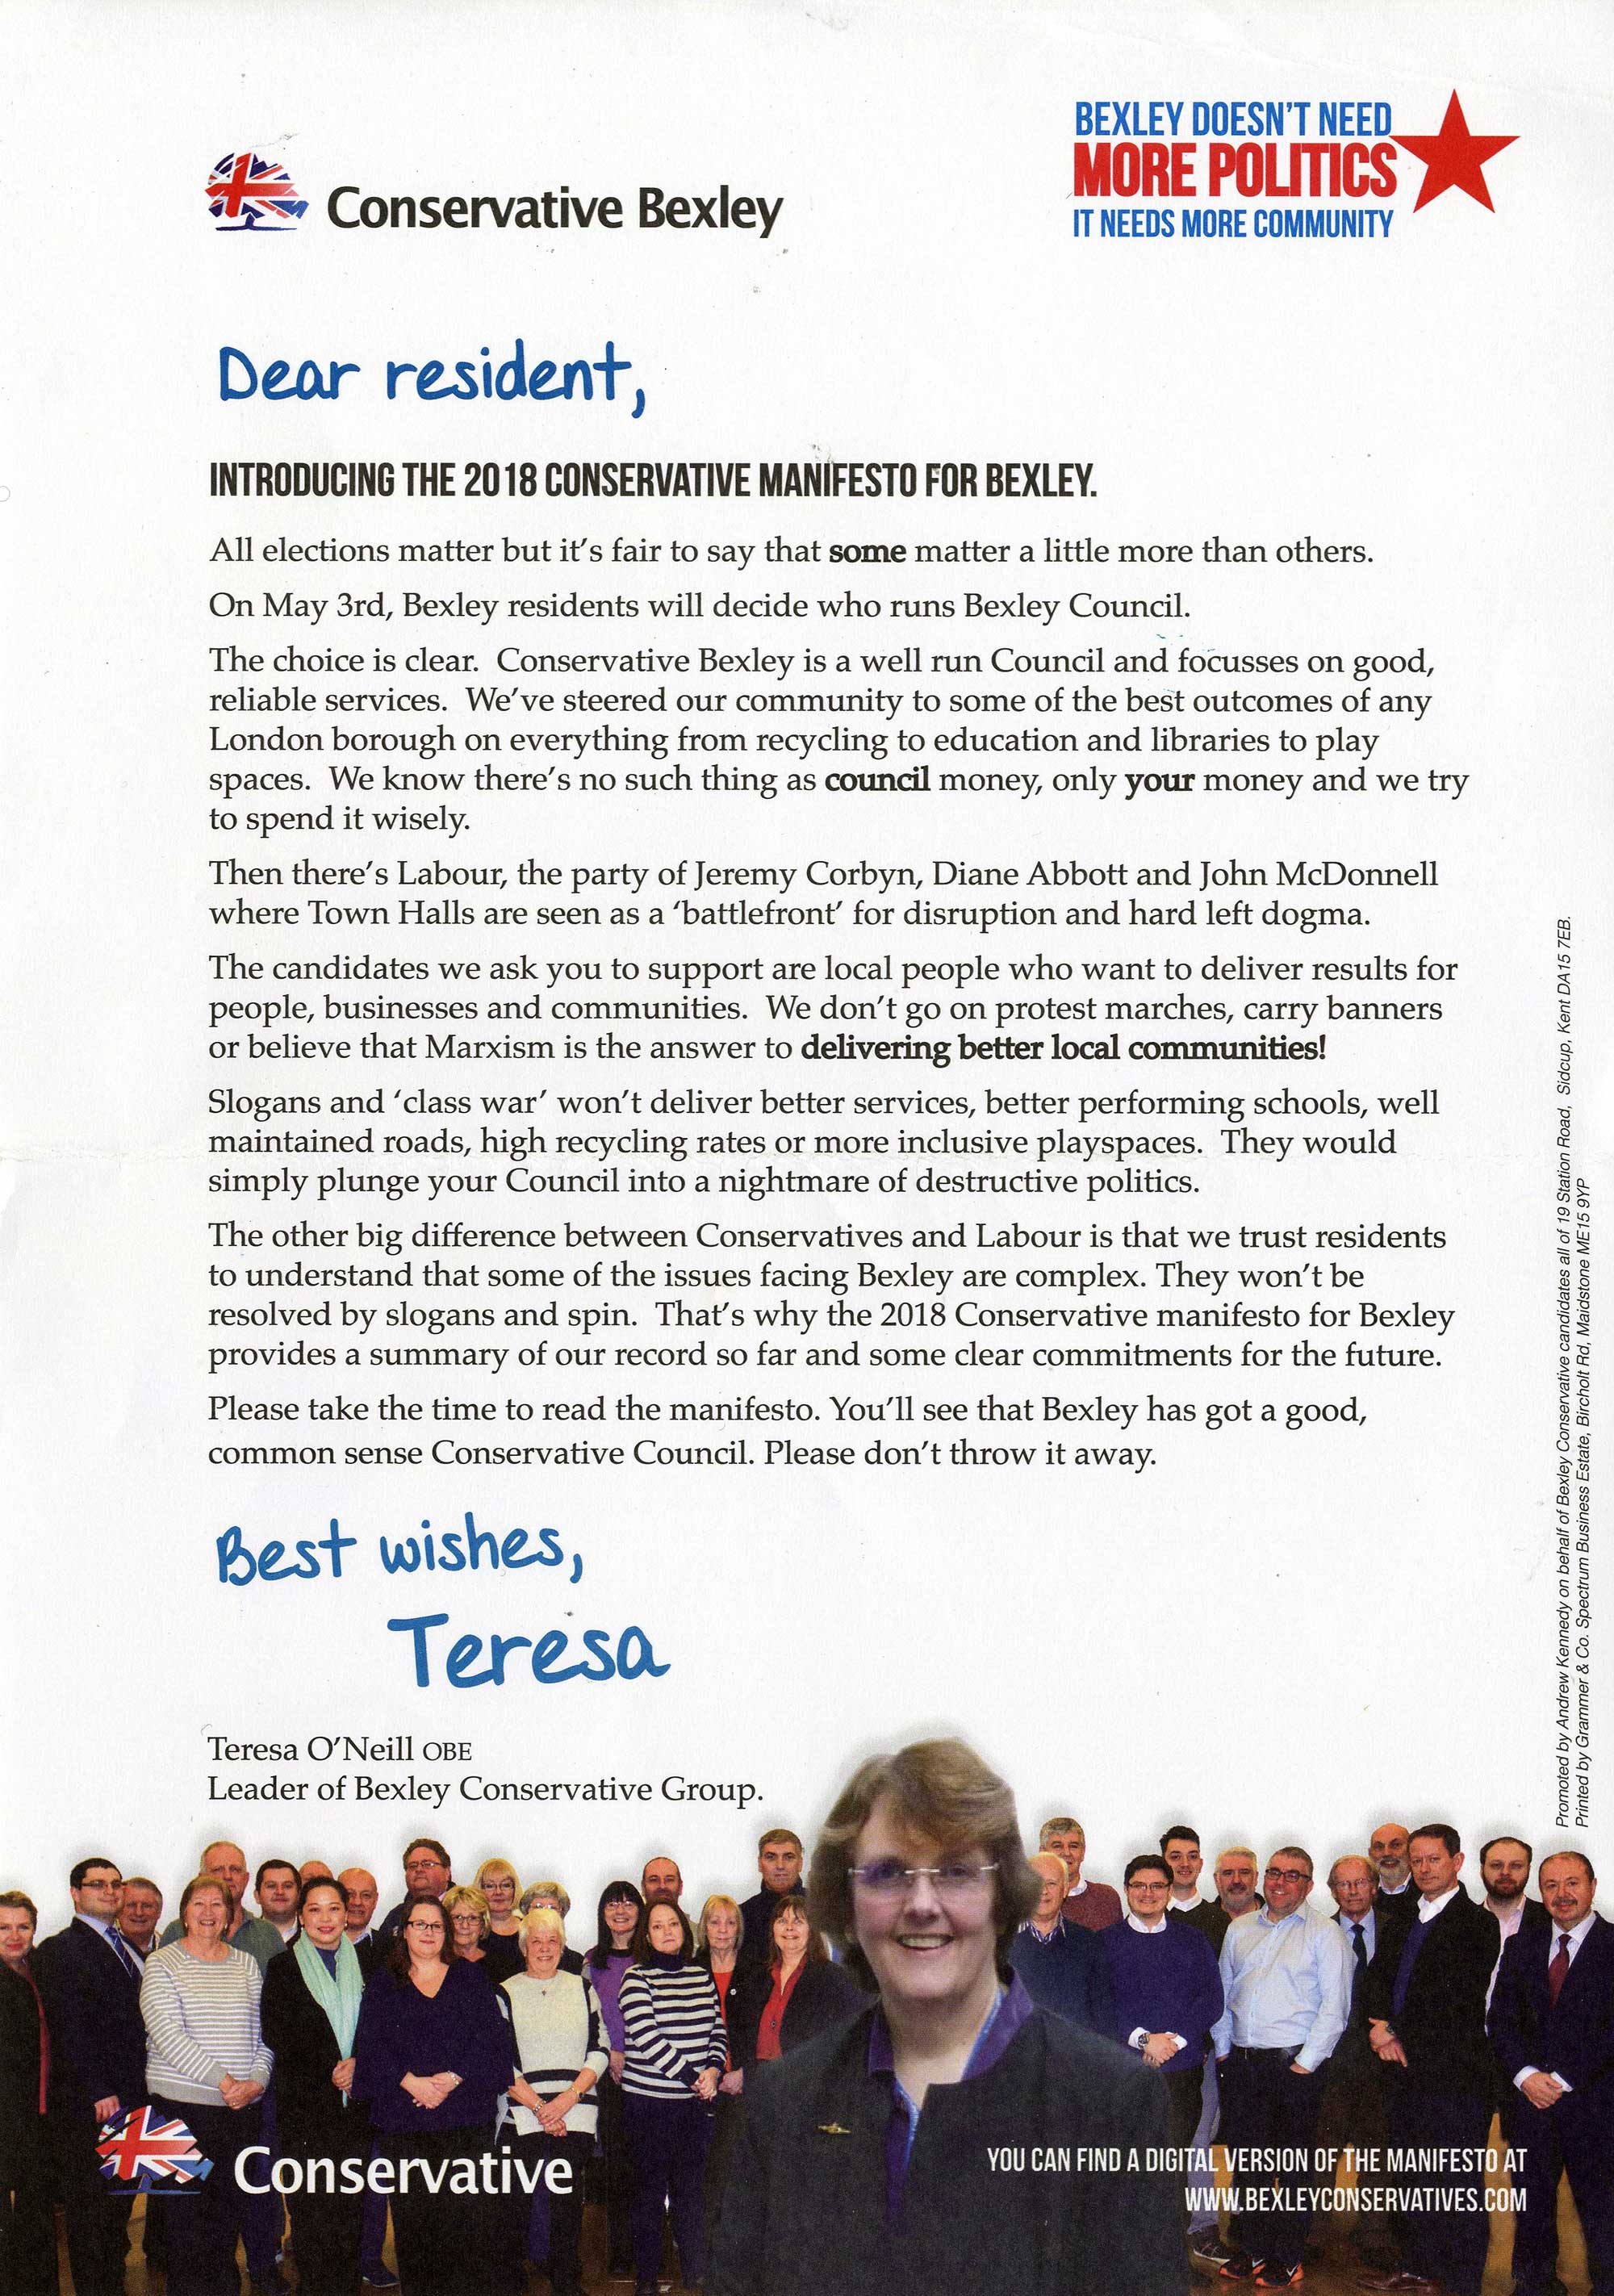 Conservative Bexley
BEXLEY DOESN'T NEED
MORE POLITICS
IT NEEDS MORE COMMUNITY
Dear resident,
INTRODUCING THE 2018 CONSERVATIVE MANIFESTO FOR BEXLEY.
All elections matter but it's fair to say that some matter a little more than others.
On May 3rd, Bexley residents will decide who runs Bexley Council.
The choice is clear.  Conservative Bexley is a well run Council and focusses on good,
reliable services.  We've steered our community to some of the best outcomes of any
London borough on everything from recycling to education and libraries to play
spaces.  We know there's no such thing as council money, only your money and we try
to spend it wisely.
Then there's Labour, the party of Jeremy Corbyn, Diane Abbott and John McDonnell
where Town Halls are seen as a 'battlefront' for disruption and hard left dogma.
The candidates we ask you to support are local people who want to deliver results for
people, businesses and communities.  We don't go on protest marches, carry banners
or believe that Marxism is the answer to delivering better local communities!
Slogans and 'class war' won't deliver better services, better performing schools, well
maintained roads, high recycling rates or more inclusive playspaces.  They would
simply plunge your Council into a nightmare of destructive politics.
The other big difference between Conservatives and Labour is that we trust residents
to understand that some of the issues facing Bexley are complex. They won't be
resolved by slogans and spin.  That's why the 2018 Conservative manifesto for Bexley
provides a summary of our record so far and some clear commitments for the future.
Please take the time to read the manifesto. You'll see that Bexley has got a good,
common sense Conservative Council. Please don't throw it away.
Best wishes,
Teresa
Teresa O'Neill OBE
Leader of Bexley Conservative Group.
Promoted by Andrew Kennedy on behalf of Bexley Conservative candidates all of 19 Station Road,  Sidcup, Kent DA15 7EB.
Printed by Grammer & Co. Spectrum Business Estate, Bircholt Rd, Maidstone ME15 9YP
Conservative
YOU CAN FIND A DIGITAL VERSION OF THE MANIFESTO AT
WWW.BEXLEYCONSERVATIVES.COM